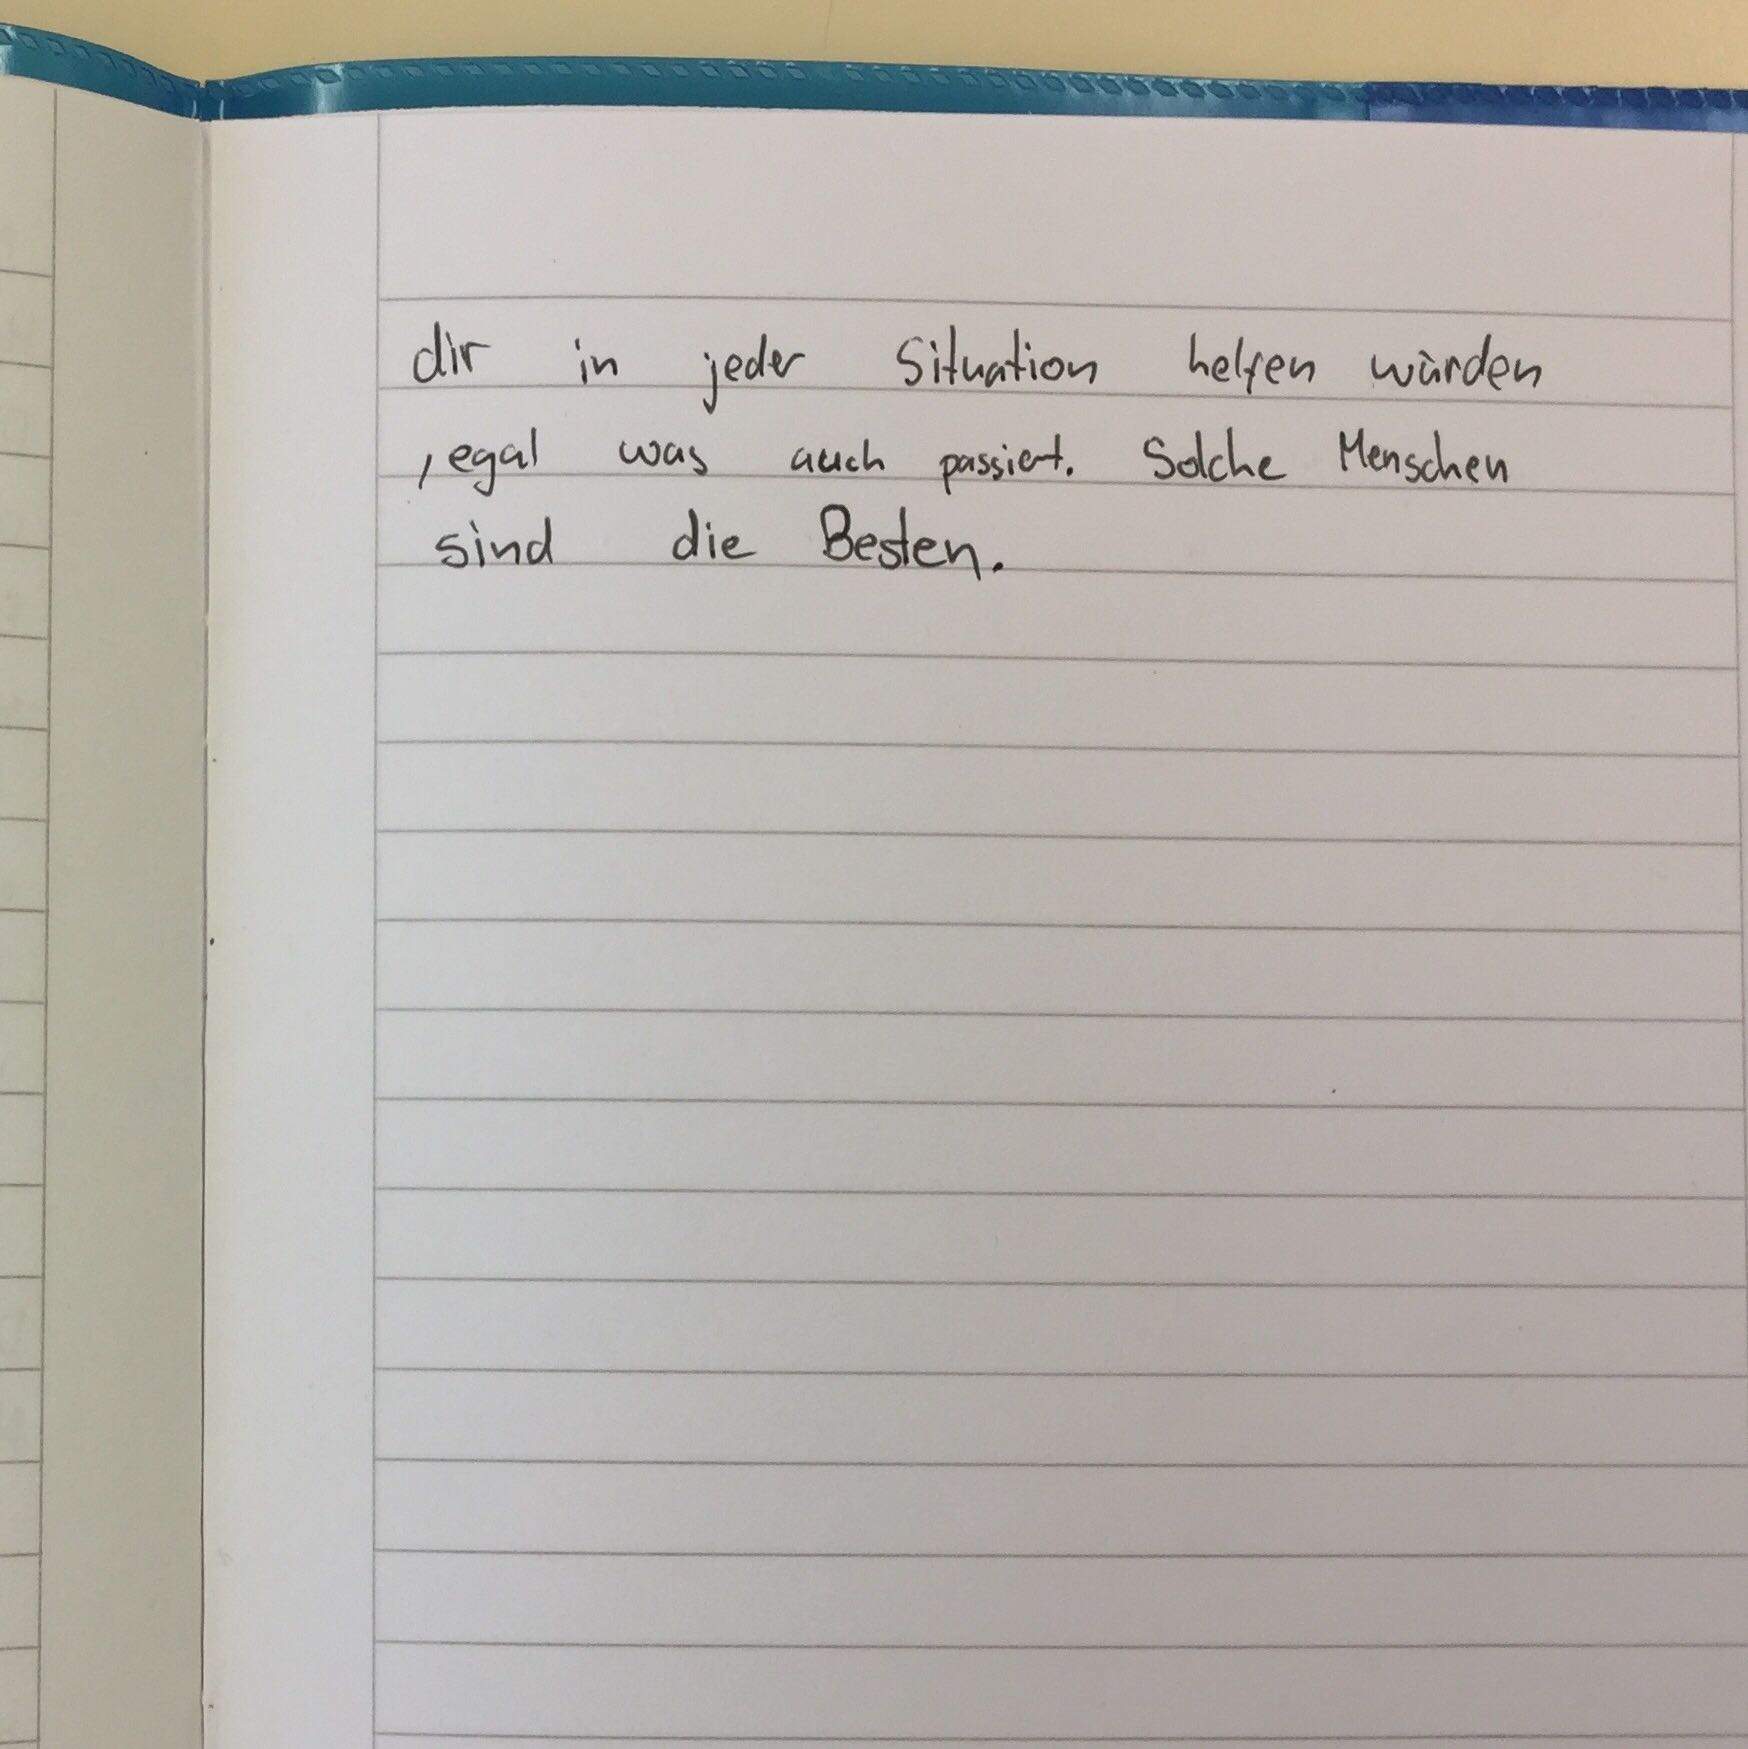 dir in jeder Situation helfen würden
, egal was auch passiert. Solche Menschen
sind die Besten.